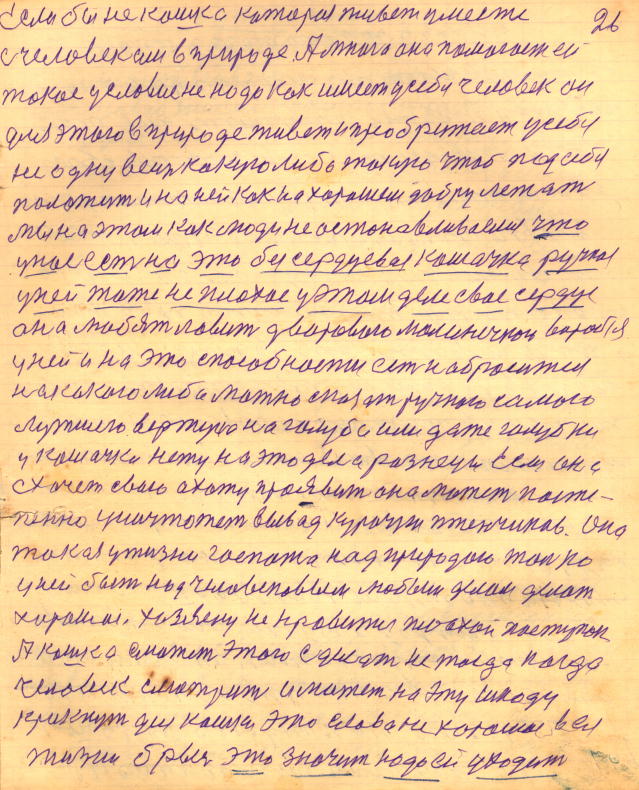 Если бы не кошка которая живет вместе
26
с человеком в природе. А много она помогает ей
такое условие не надо как имеет у себя человек он
для этого в природе живет и преобритает у себя
не одну вещь какую либо такую чтоб под себя
положит и на ней как на хорошем добру лежат
мы на этом как люди не остонавливаемся что
у нас ест на это бессердцевая кошачка ручная
у ней тоже не плохое у этом деле свое сердце
она любят ловит дворового малинечкой воробья
у ней и на это способности ест набросится
на какого либо можно сказат ручного самого
лутшего вертуна голуба или даже голубки
у кошачки нету на это дела разнецы Если она
схочет свою охоту проявит она может посте-
пенно уничтожет вывад курочки птенчиков. Она
такая у жизни госпожа над природою тако
у ней быт над человеповым любым делом делат
хорошое. Хозяену не нравится плохой поступок
А кошка сможет этого сделат не тогда когда
человек смотрит и может на эту шкоду
крикнут для кошки это слова не хорошое вся
жизни брысь это значит надо ей уходит